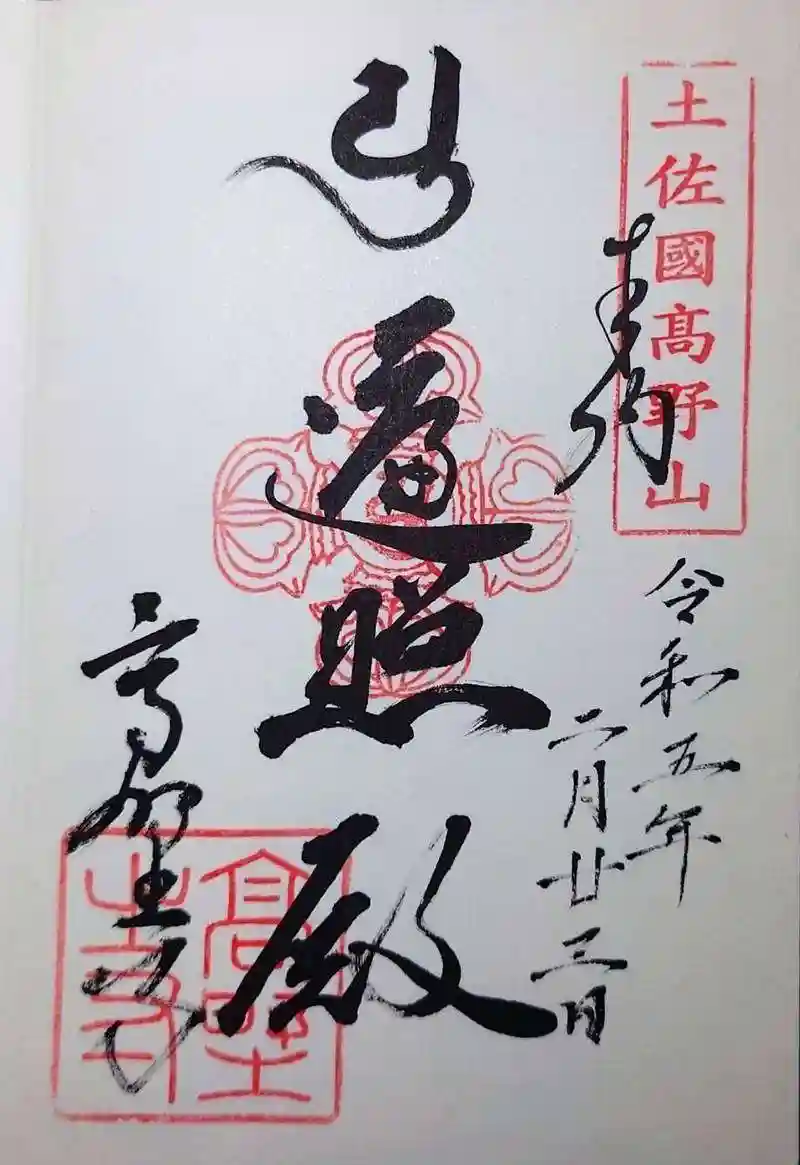 土佐國髙野山
奉納
令和五年
二月廿三日
遍照殿
高野寺
高野寺印